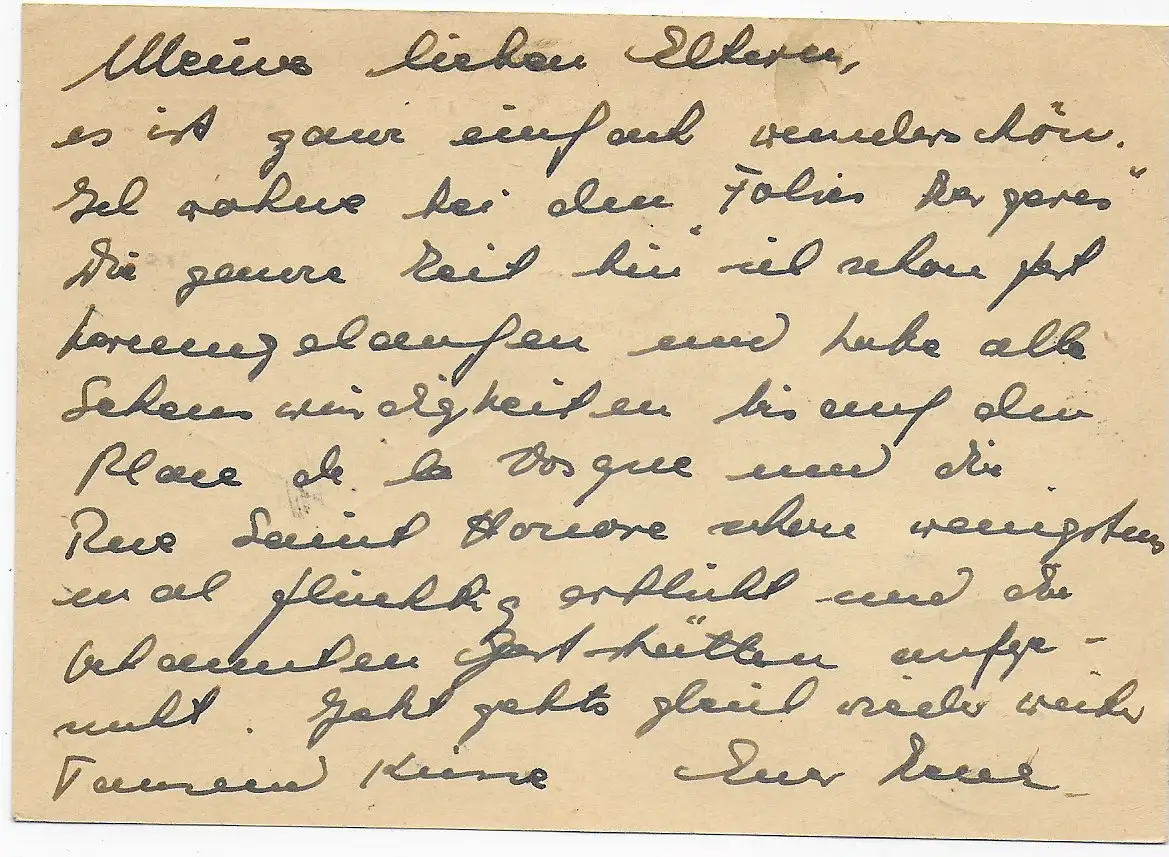 Meine lieben Eltern,
es ist ganz einfach wunderschön.
Ich wohne bei den "Folies Bergeres"
Die ganze Zeit bin ich schon fest
herumgelaufen und habe alle
Sehenswürdigkeiten bis auf den
Place de la Vosgue und die
Rue Saint Honore schon wenigstens
mal flüchtig erblickt und die
bekannten Gaststätten aufge-
sucht. Jetzt gehts gleich wieder weiter
Tausend Küsse Euer